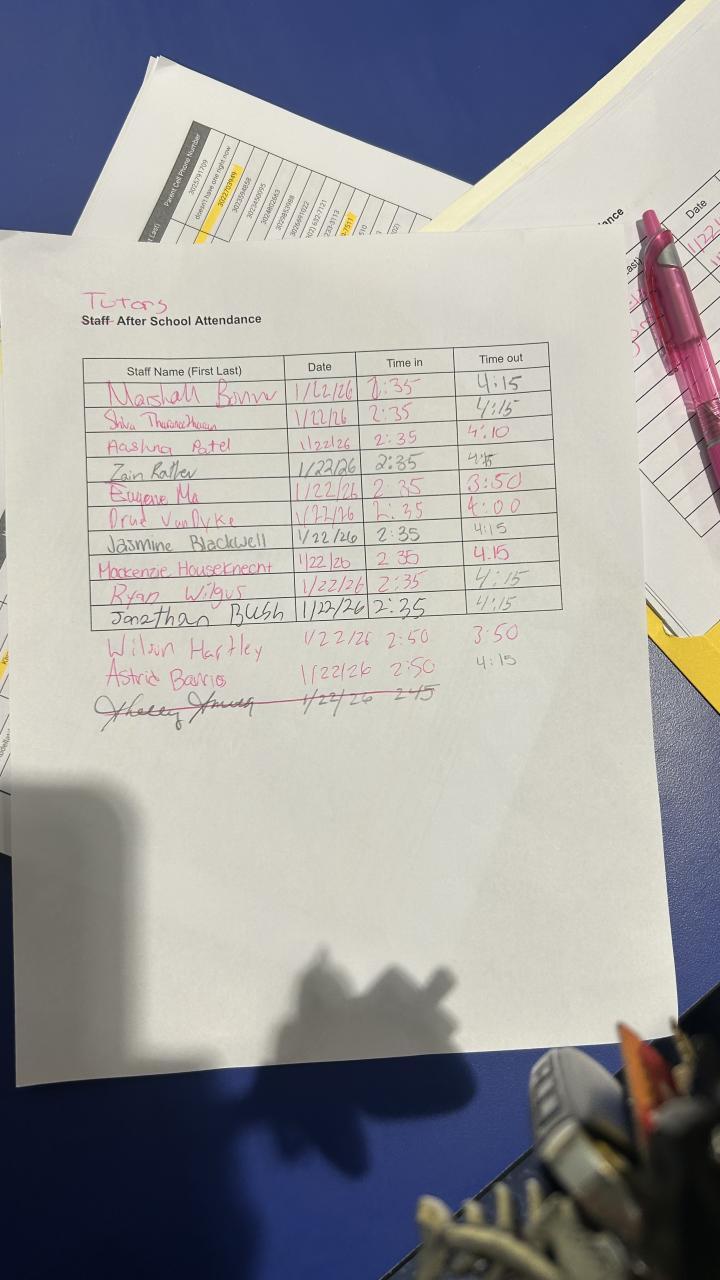 Parent Cell Phone Number
3025791709
doesn't have one right now
3022703949
3023594858
3023450095
3024802663
3029853988
3026691022
Date
Tutors
Staff After School Attendance
Staff Name (First Last) Date Time in Time out
Marshall 1/22/26 2:35 4:15
Shiva 1/22/26 2:35 4:15
Aashna Patel 1/22/26 2:35 4:10
Zain 1/22/26 2:35 4:15
Eugene Ma 1/22/26 2:35 3:50
Drue VanDyke 1/22/26 2:35 4:00
Jasmine Blackwell 1/22/26 2:35 4:15
Mackenzie Houseknecht 1/22/26 2 35 4:15
Ryan Wilgus 1/22/26 2:35 4:15
Jonathan Bush 1/22/26 2:35 4:15
Wilson Hartley 1/22/26 2:50 3:50
Astrid Barrios 1/22/26 2:50 4:15
1/22/26 245